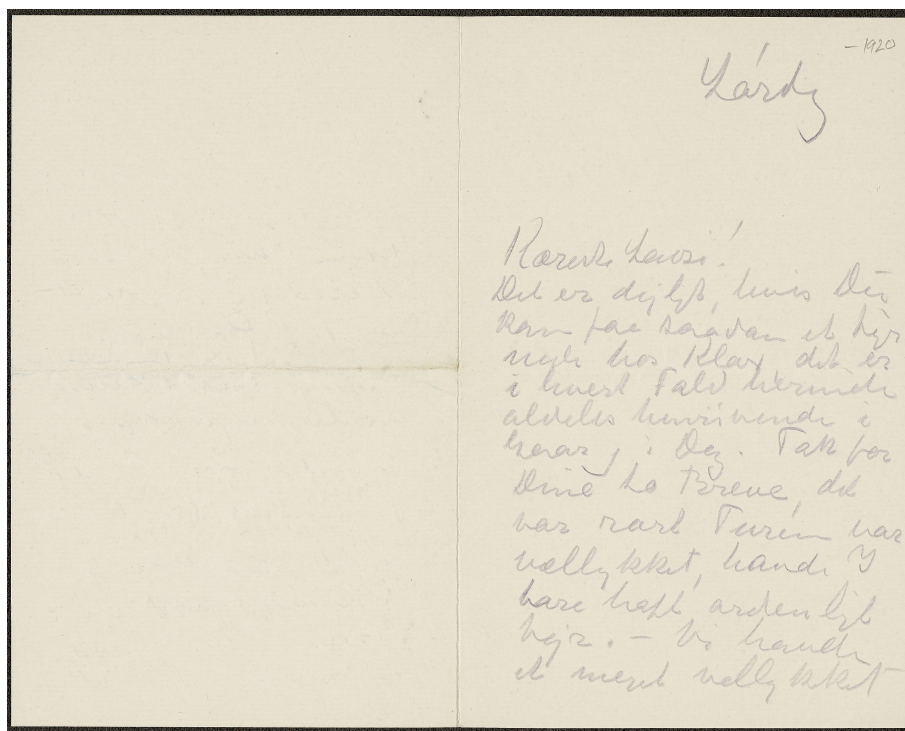 -1920
Lørdg
Kæreste Lausi!
Det er dejligt, hvis Du
kan faa saadan et
hos Klax, det er
i hvert Fald herinde
aldeles henrivende i
i Dag. Tak for
Dine to Breve, det
var rart Turen var
vellykket, havde I
bare haft ordenligt
Vejr. – Vi havde
et meget vellykket